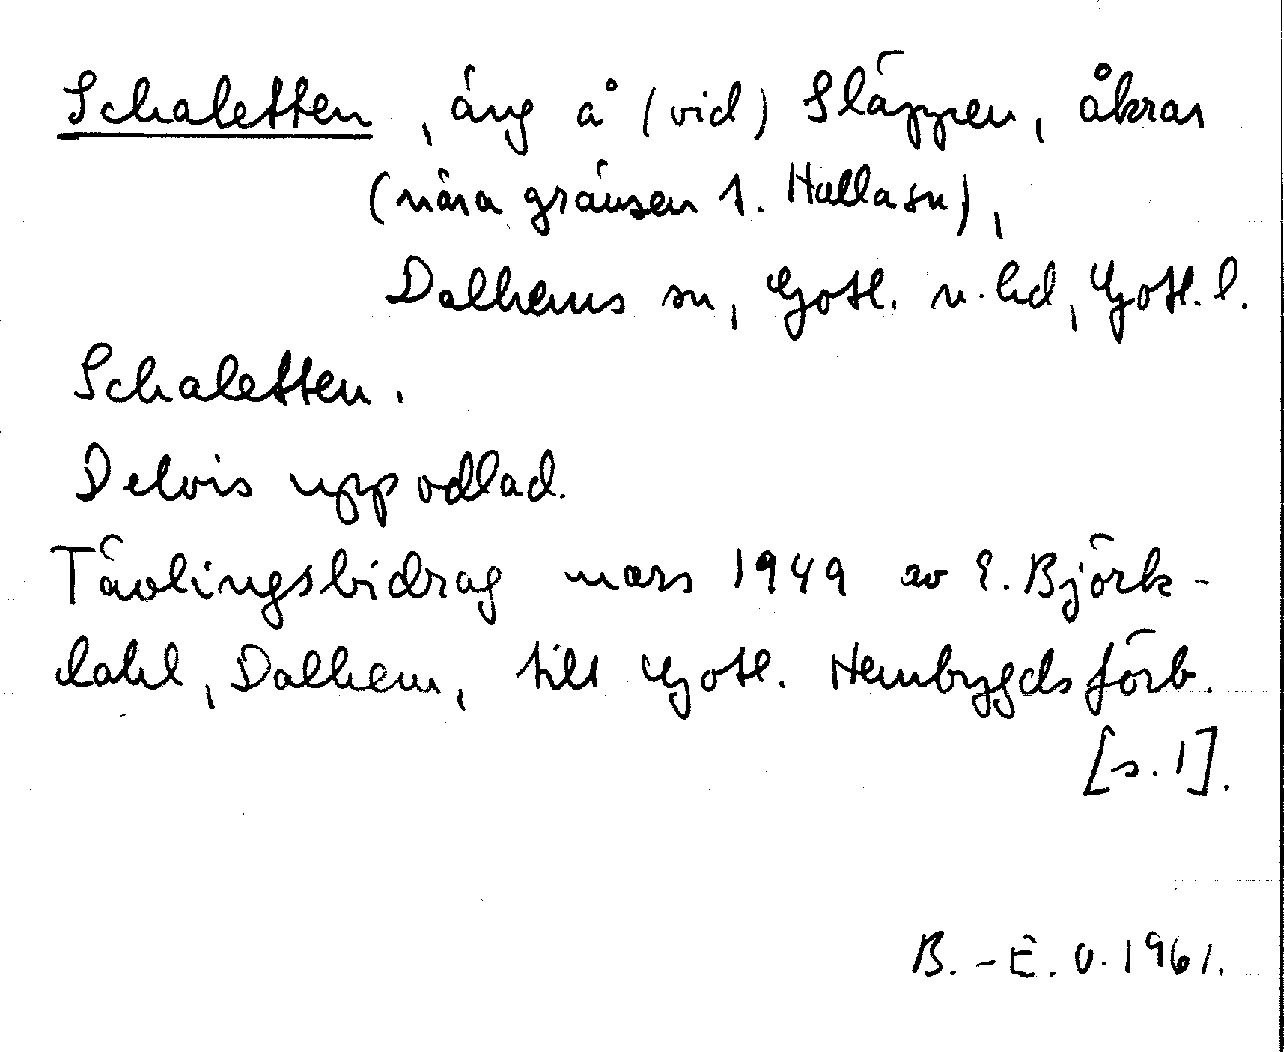 Schaletten, äng å (vid) Släppen, åkrar
(nära gränsen t. Halla sn),
Dalhems sn, Gotl. n. hd, Gotl. l.
Schaletten.
Delvis uppodlad.
Tävlingsbidrag mars 1949 av E. Björk-
dahl, Dalhem, till Gotl. Hembygdsförb.
[s. 1].
B.-E. O. 1961.